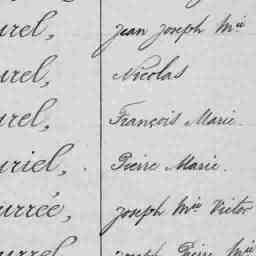 urel, Jean Joseph Mie
urel, Nicolas
urel, François Marie.
uriel, Pierre Marie.
urrée, Joseph Mie Victor
urrel Joseph Pierre Mie